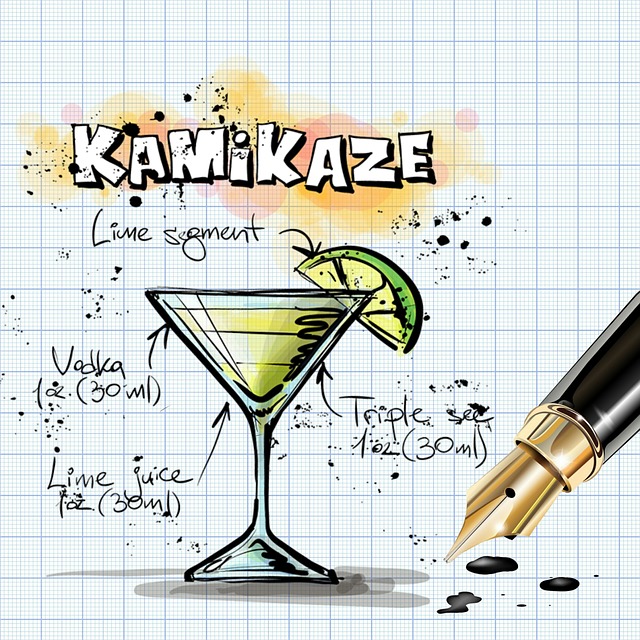 KAMiKAZE
Lime segment
Vodka
1 oz. (30 ml)
Triple sec
1 oz. (30 ml)
Lime juice
1 oz. (30 ml)